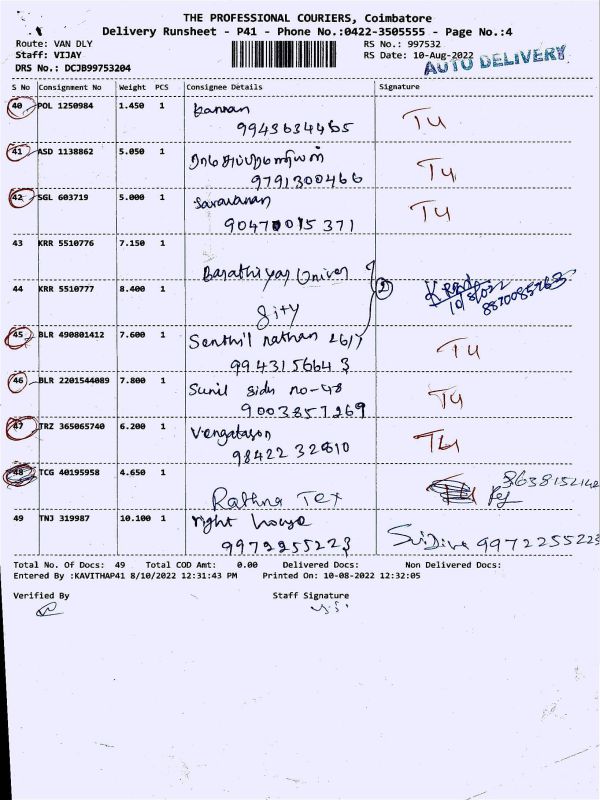 THE PROFESSIONAL COURIERS, Coimbatore
Delivery Runsheet - P41 - Phone No.:0422-3505555 - Page No.:4
Route: VAN DLY
RS No.: 997532
Staff: VIJAY
RS Date: 10-Aug-2022
AUTO DELIVERY
DRS No.: DCJB99753204
S No Consignment No Weight PCS Consignee Details Signature
40 POL 1250984 1.450 1 Kannan
TU
41 ASD 1138862 5.050 1
9791300466
TU
42 SGL 603719 5.000 1 Saravanan
TU
43 KRR 5510776 7.150 1
Barathiyar Univer
44 KRR 5510777 8.400 1
2
10/8/022
8870085763
sity
45 BLR 490801412 7.600 1 Senthil nathan
9943156643
TU
46 BLR 2201544089 7.800 1 Sunil sidu no-48
9003857269
TU
47 TRZ 365065740 6.200 1 Vengatason
TU
48 TCG 40195958 4.650 1
Rathna Tex
49 TNJ 319987 10.100 1 right house
9972255223
9972255223
Total No. Of Docs: 49 Total COD Amt: 0.00 Delivered Docs: Non Delivered Docs:
Entered By :KAVITHAP41 8/10/2022 12:31:43 PM Printed On: 10-08-2022 12:32:05
Verified By Staff Signature